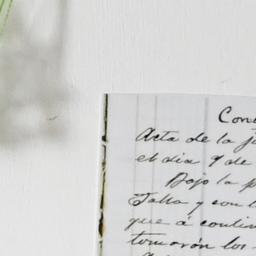 Con
Acta de la
el dia 9 de
Bajo la p
y con l
que á contin
tomarón los